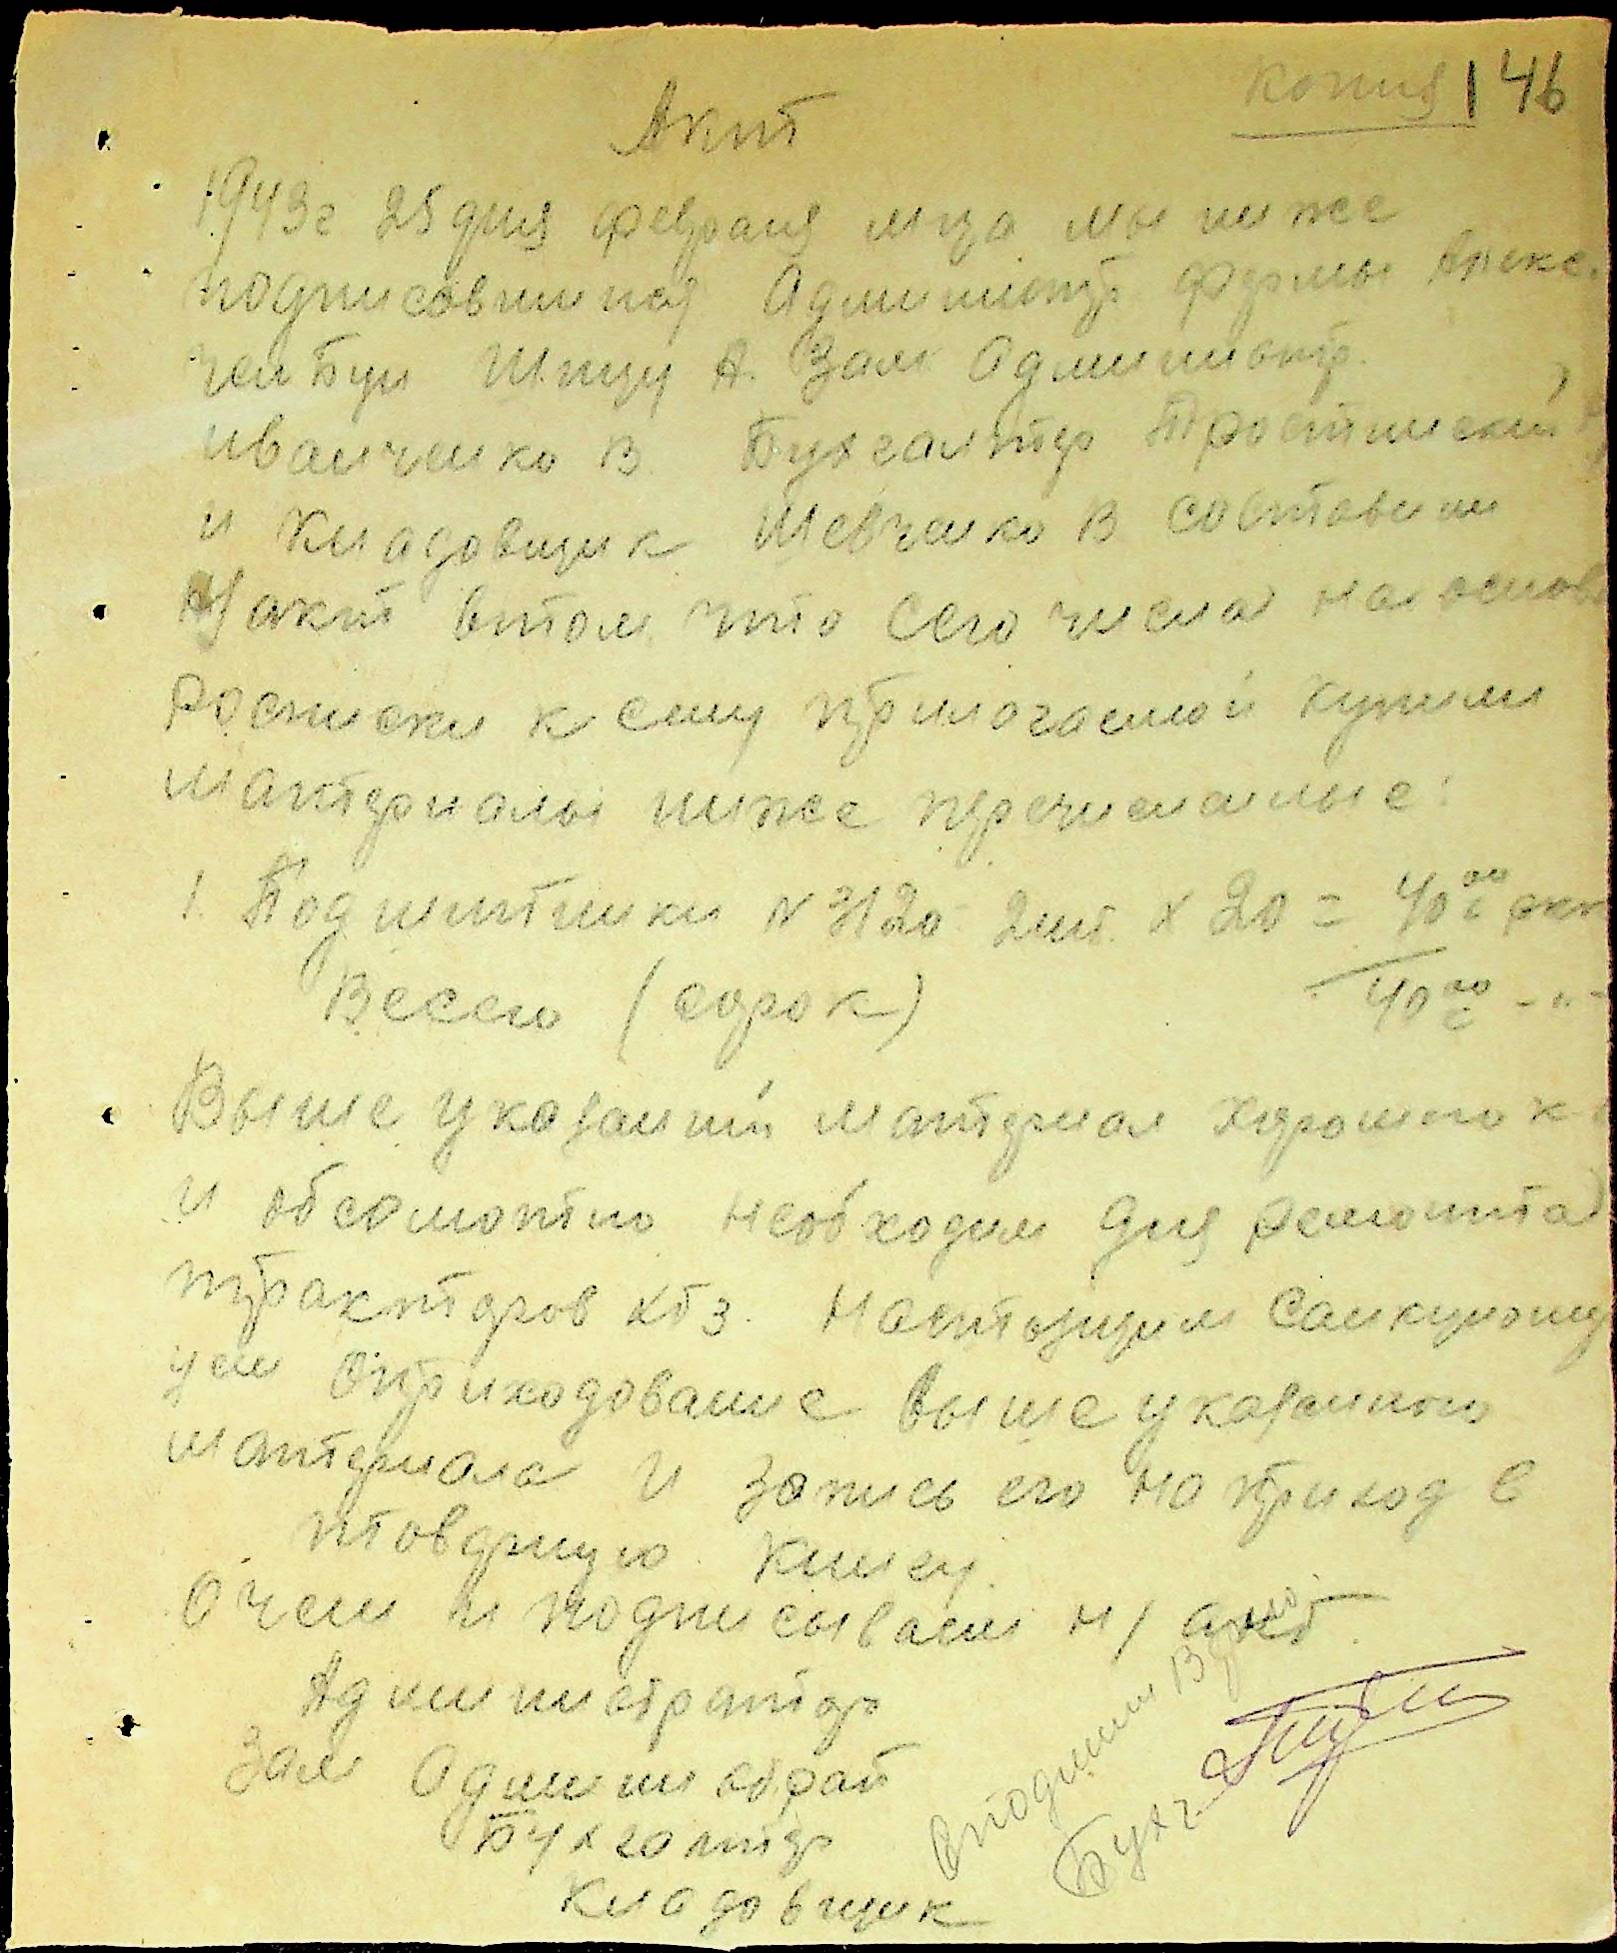 Копия 146
Акт
1943 г 25 дня февраля м-ца мы ниже
подписавшиися Администр фермы Алекс.
Шпиц А. Зам Администр.
Иванченко В. Бухгалтер
и Кладовщик Шевченко В составили
н/акт втом что сего числа на основ
росписки к сему прилогаемой купили
материалы ниже перечисленые:
1. Подшипники N 3120 2шт. х 20 = 40 00 ркм
Всего (сорок) 40 00 -"-
Выше указаний материал хорошого к
и абсолютно необходим для ремонта
тракторов ХТЗ. Настоящим санкциониру
ем оприходование выше указанного
материала и запись его на приход в
товарную книгу.
О чем и подписываем н/акт.
Администратор
Зам Администрат
Бухгалтер
Кладовщик
Бухг.